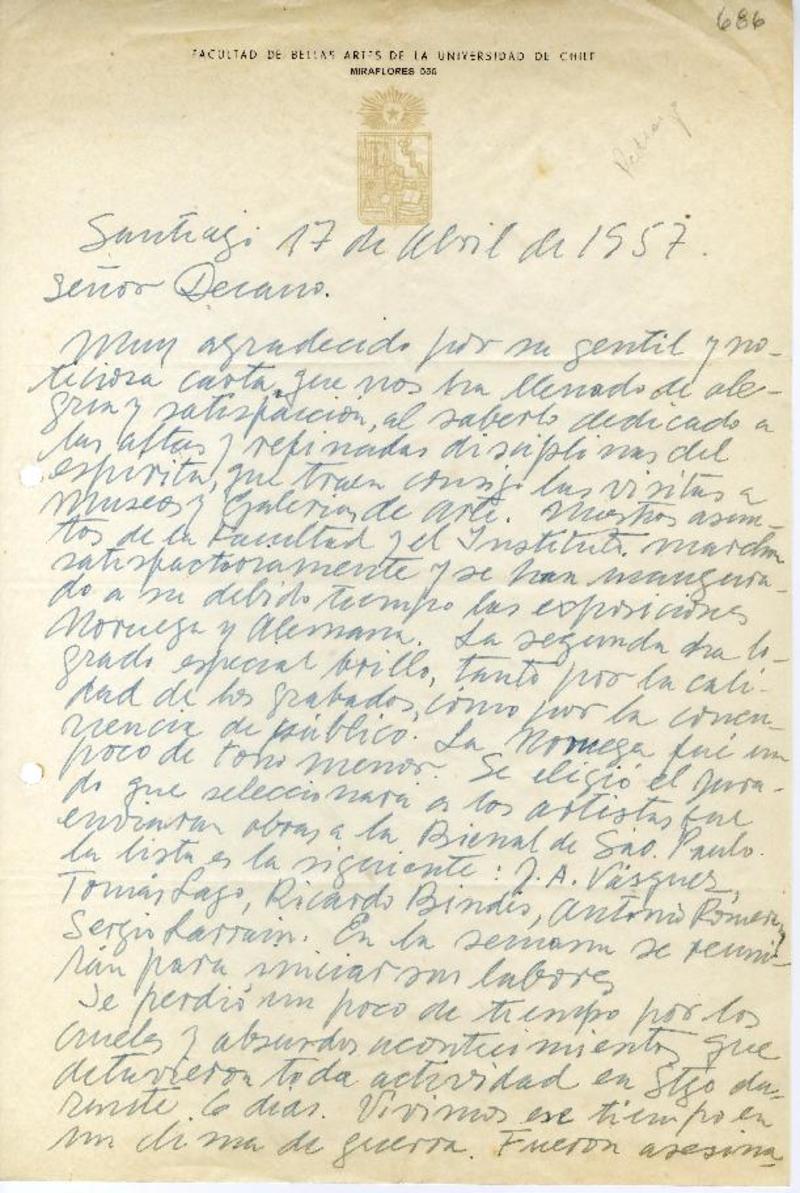 686
FACULTAD DE BELLAS ARTES DE LA UNIVERSIDAD DE CHILE
MIRAFLORES 556
Santiago 17 de Abril de 1957.
Señor Decano.
Muy agradecido por su gentil y no-
ticiosa carta, que nos ha llenado de ale-
gria y satisfaccion, al saberlo dedicado a
las altas y refinadas disciplinas del
espiritu, que traen consigo las visitas a
Museos y Galerias de Arte. Nuestros asun-
tos de la Facultad y el Instituto marchan
satisfactoriamente y se han inaugura-
do a su debido tiempo las exposiciones
Noruega y Alemana. La segunda ha lo-
grado especial brillo, tanto por la cali-
dad de los grabados, como por la concu-
rrencia de público. La Noruega fué un
poco de tono menor. Se eligió el jura-
do que seleccionará a los artistas que
enviaran obras a la Bienal de Sáo. Paulo.
la lista es la siguiente: J. A. Vásquez,
Tomás Lago, Ricardo Bindis, Antonio Romera,
Sergio Larrain. En la semana se reuni-
rán para iniciar sus labores
Se perdió un poco de tiempo por los
crueles y absurdos acontecimientos que
detuvieron toda actividad en Stgo du-
rante 6 dias. Vivimos ese tiempo en
un clima de guerra. Fueron asesina-